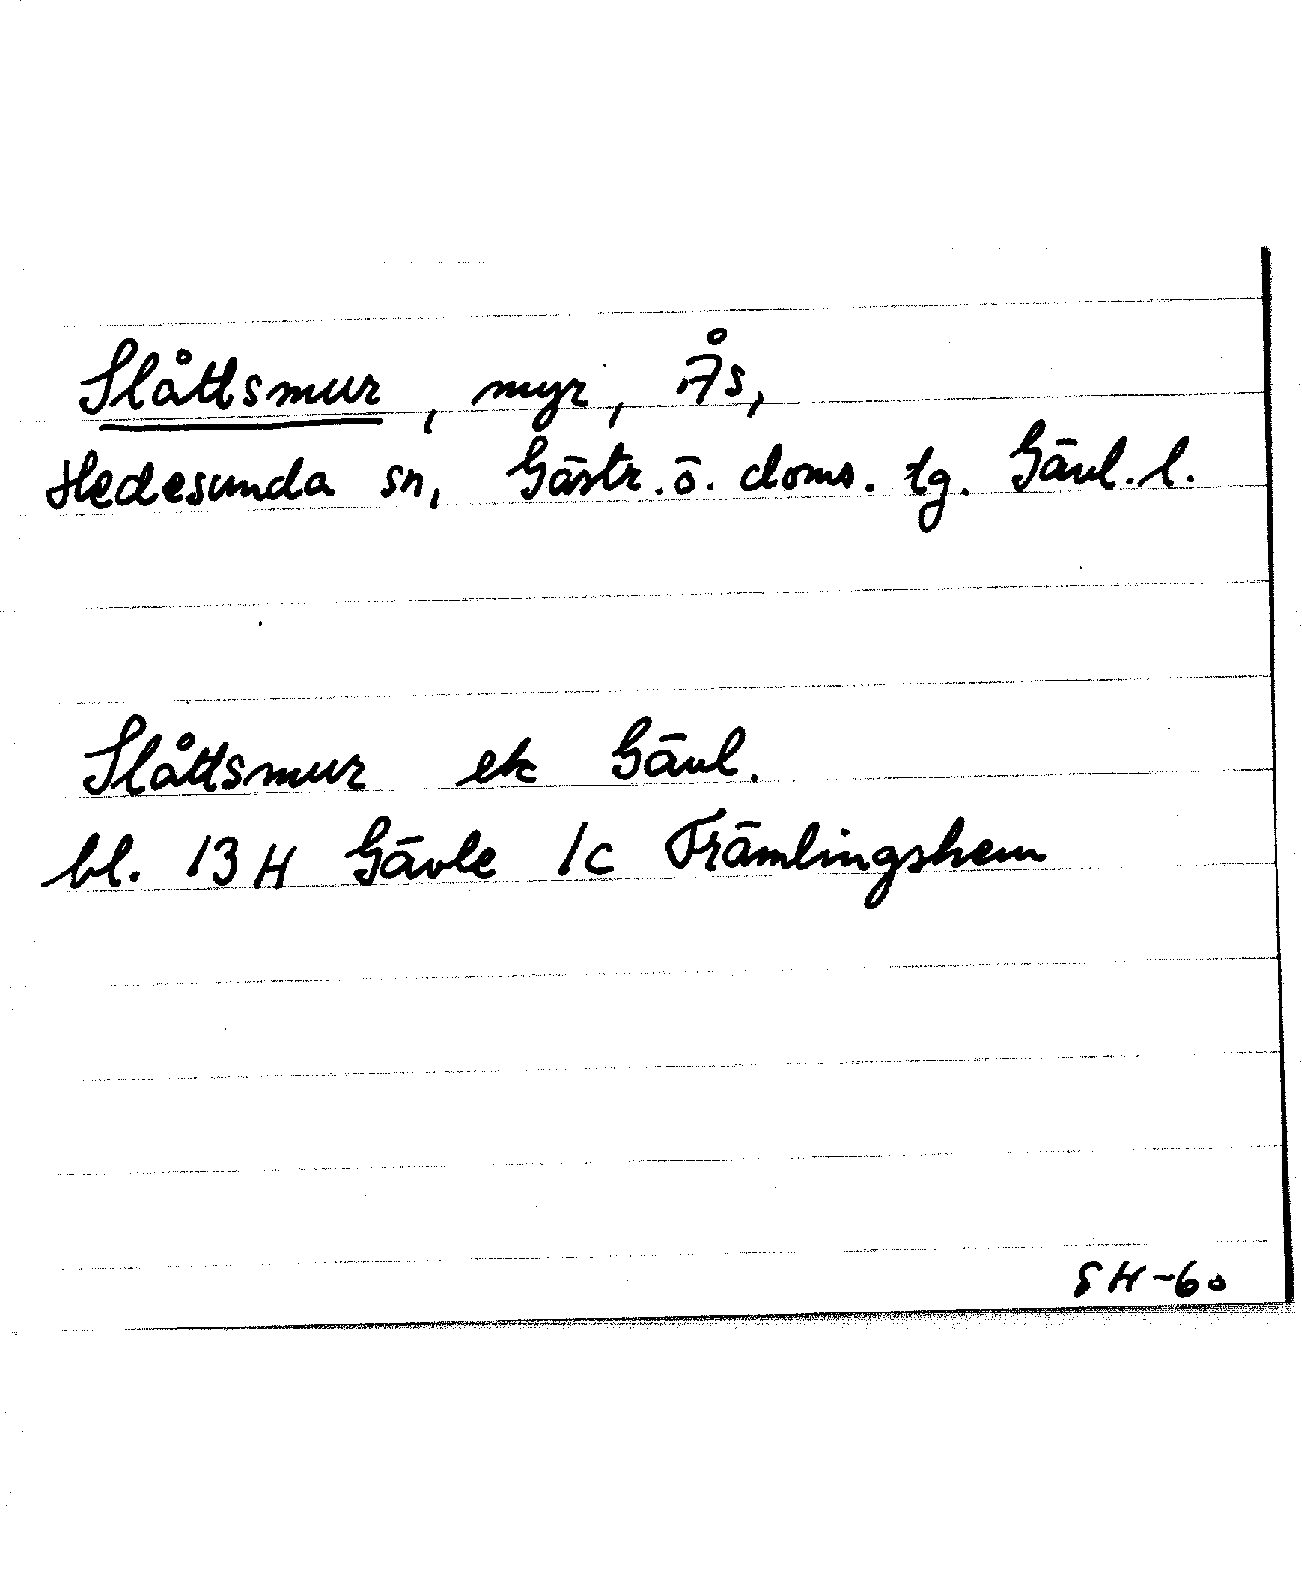 Slåttsmur, myr, Ås,
Hedesunda sn, Gästr. ö. doms. tg. Gävl. l.
Slåttsmur ek Gävl.
bl. 13 H Gävle 1c Främlingshem
SH-60